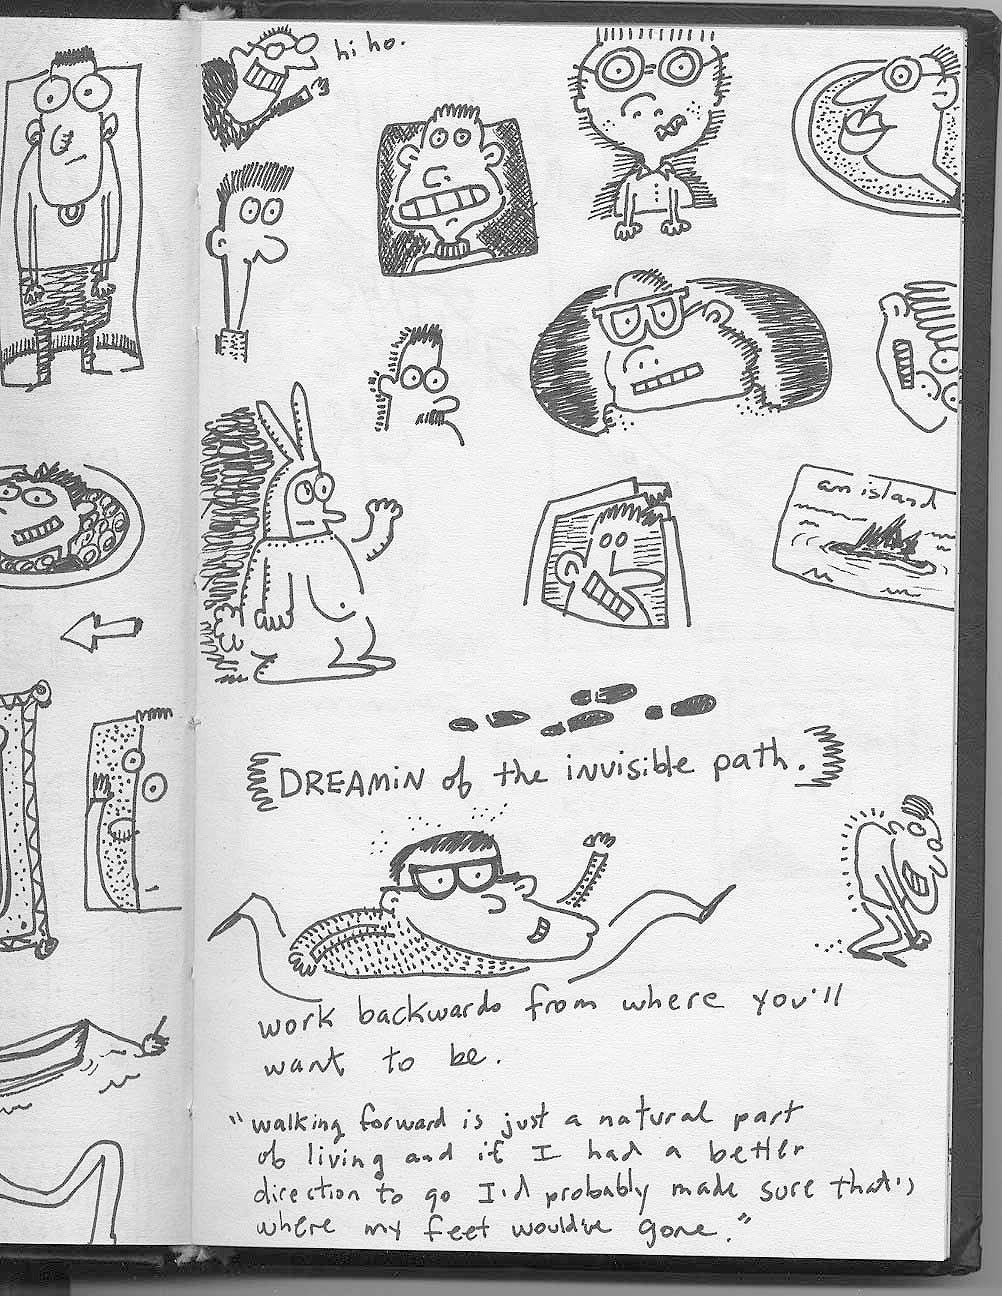 hi ho.
an island
DREAMIN of the invisible path.
work backwards from where you'll
want to be.
"walking forward is just a natural part
of living and if I had a better
direction to go I'd probably made sure that's
where my feet would've gone."